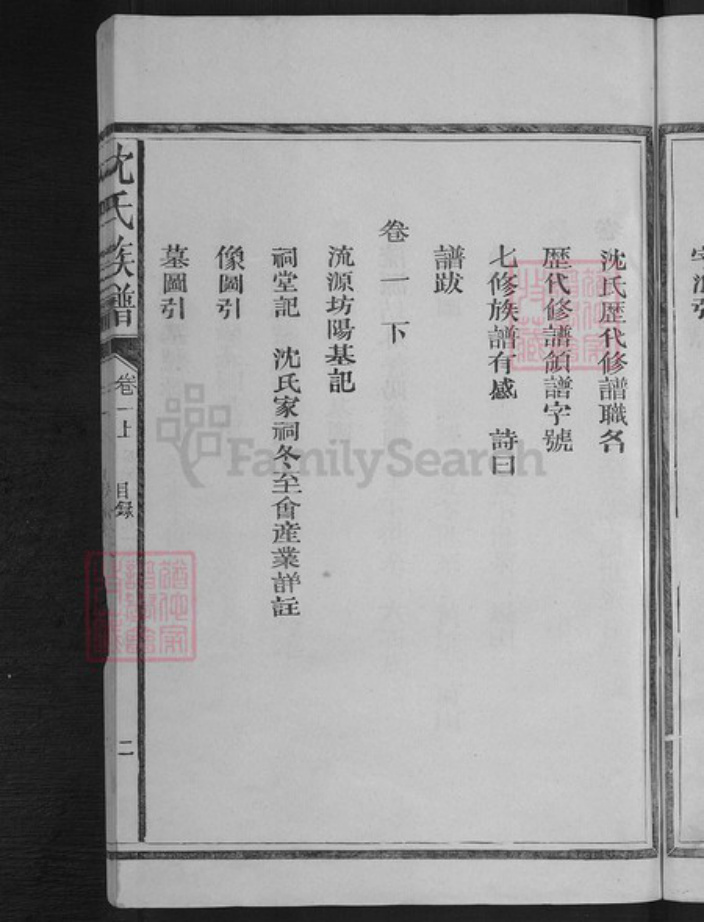 沈氏歷代修譜職名
歷代修譜領譜字號
七修族譜有感　詩曰
譜跋
卷一下
流源坊陽基記
祠堂記　沈氏家祠冬至會產業詳註
像圖引
墓圖引
沈氏族譜
卷一上
目錄
二
FamilySearch